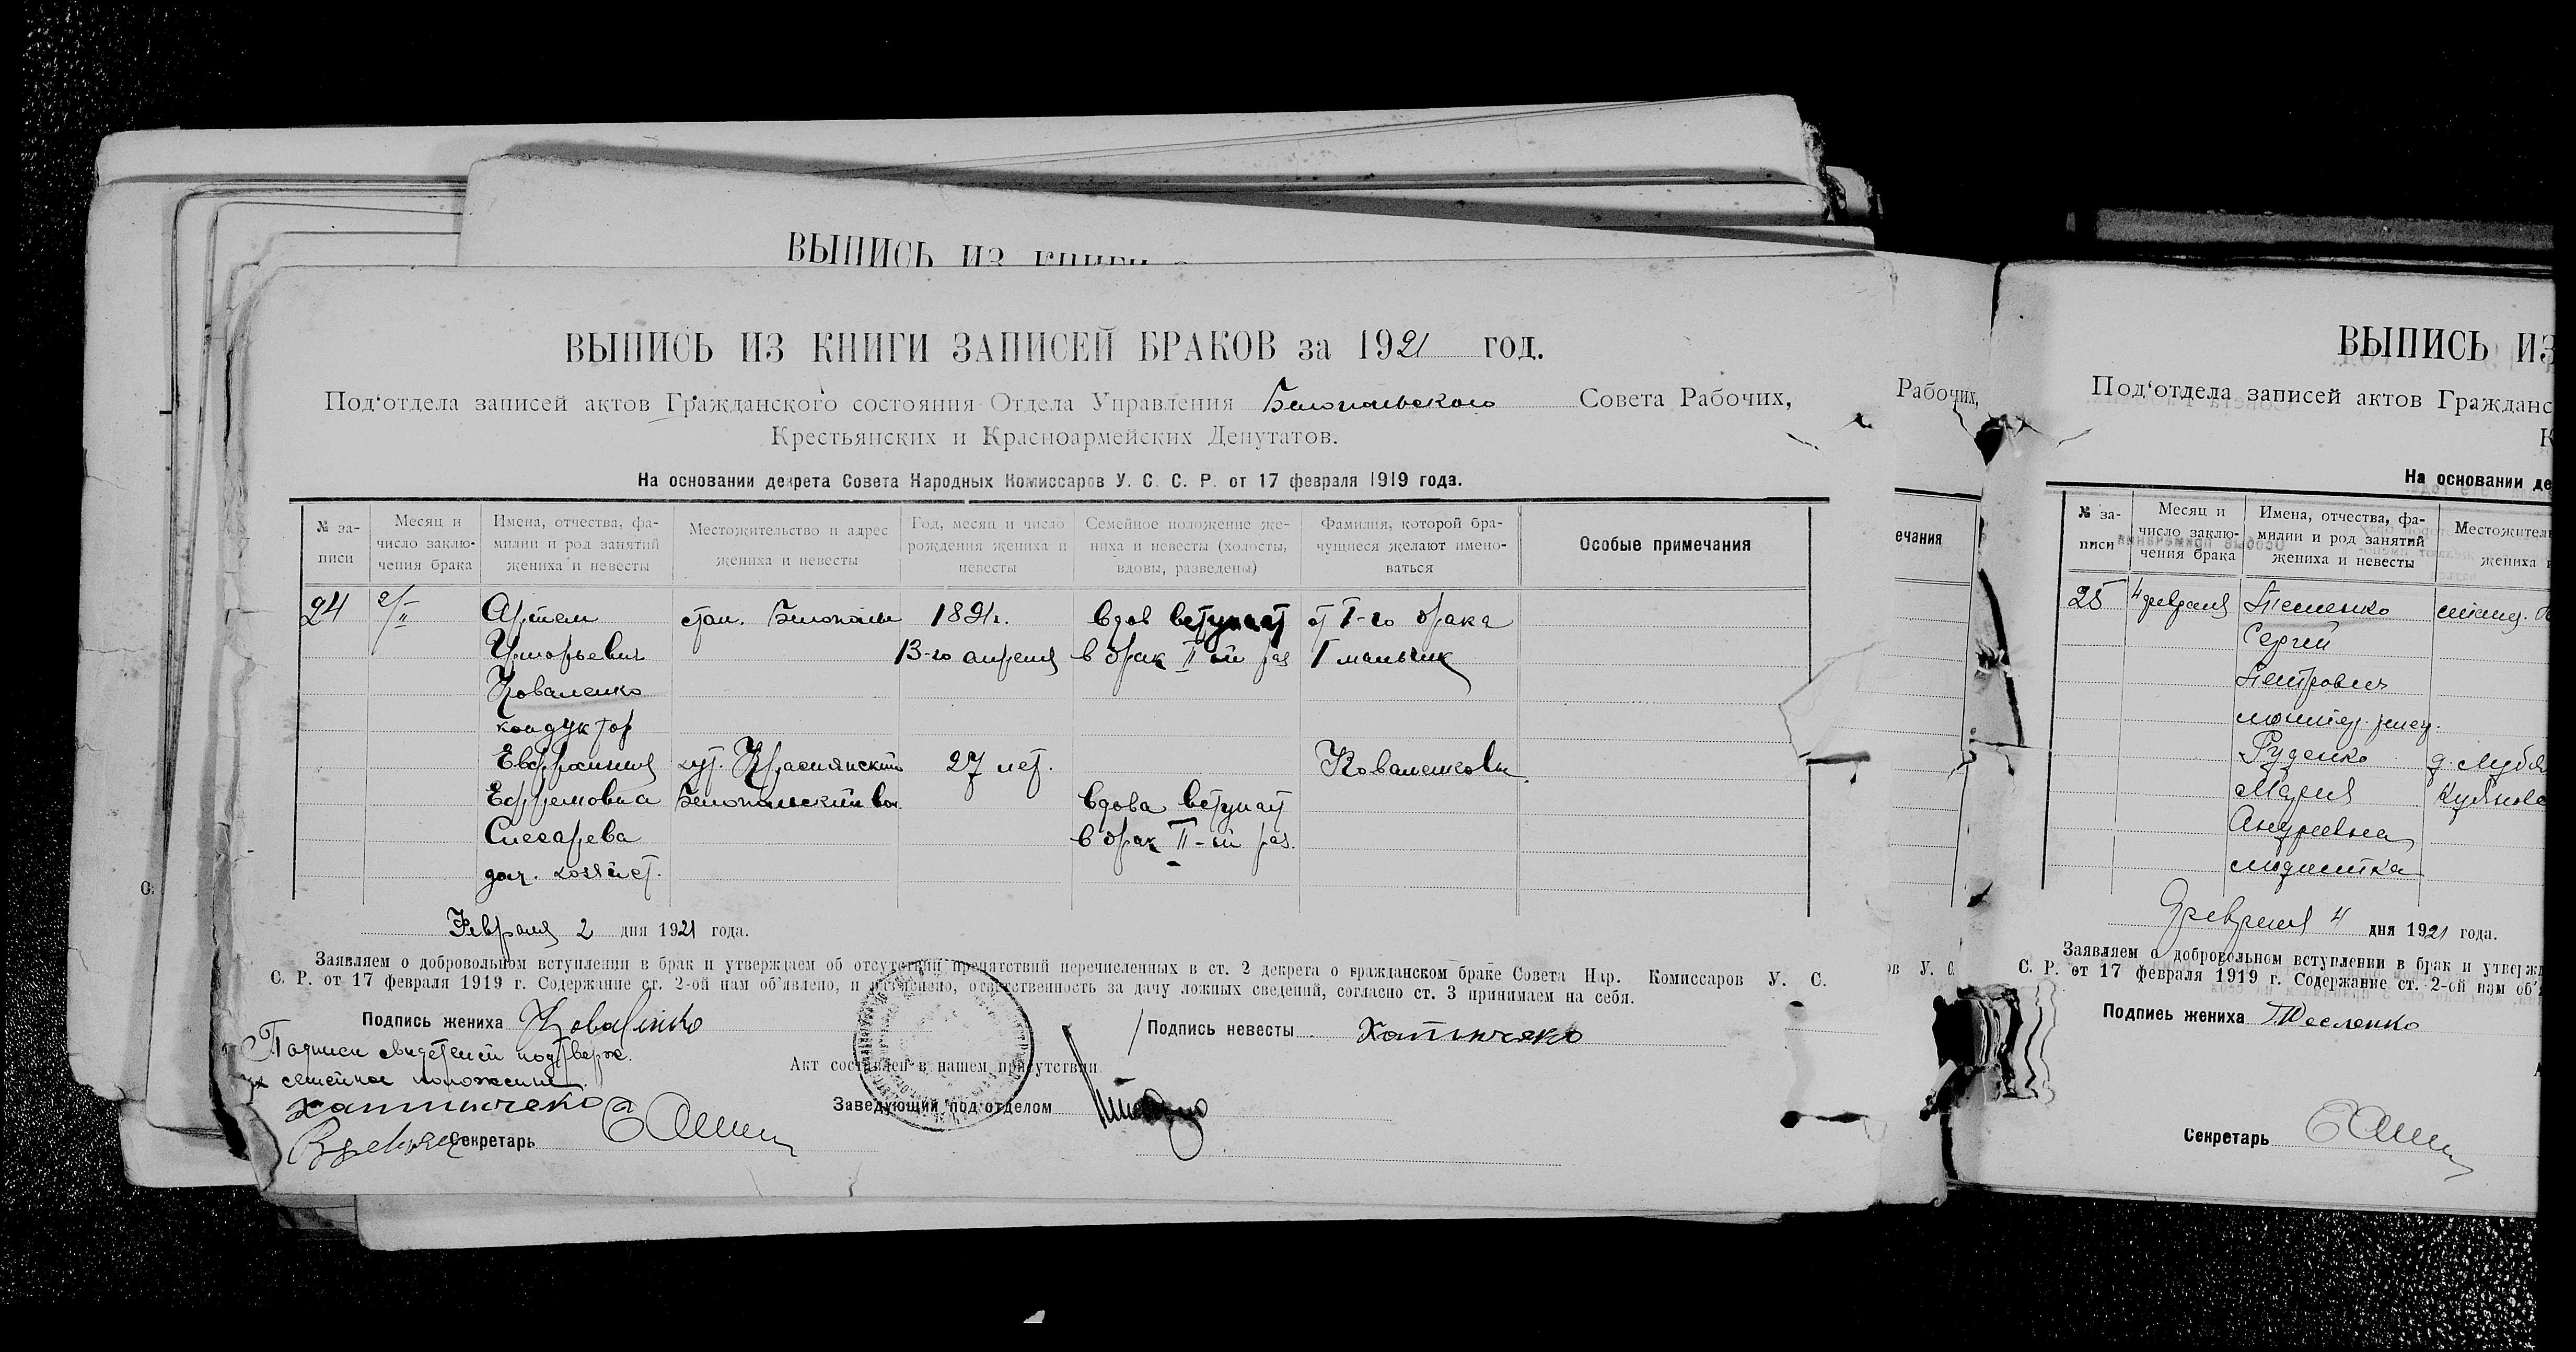 ВЫПИСЬ ИЗ КНИГИ
ВЫПИСЬ ИЗ КНИГИ ЗАПИСЕЙ БРАКОВ за 1921 год.
Под'отдела записей актов Гражданского состояния Отдела Управления Белопольского Совета Рабочих,
Крестьянских и Красноармейских Депутатов.
На основании декрета Совета Народных Комиссаров У. С. С. Р. от 17 февраля 1919 года.
№ записи
Месяц и число заключения брака
Имена, отчества, фамилии и род занятий жениха и невесты
Местожительство и адрес жениха и невесты
Год, месяц и число рождения жениха и невесты
Семейное положение жениха и невесты (холосты, вдовы, разведены)
Фамилия, которой брачущиеся желают именоваться
Особые примечания
24 2/II Артем стан. Белополье 1891г. вдов вступает от I-го брака
13-го апреля в брак II-ой раз 1 мальчик
Коваленко
кондуктор
Евфросиния хут. 27 лет. Коваленковы
Ефремовна Белопольский вол. вдова вступает
Слесарева в брак II-ой раз.
дом. хозяйст.
Февраля 2 дня 1921 года.
Заявляем о добровольном вступлении в брак и утверждаем об отсутствии препятствий перечисленных в ст. 2 декрета о гражданском браке Совета Нар. Комиссаров У. С.
С. Р. от 17 февраля 1919 г. Содержание ст. 2-ой нам об'явлено, и раз'яснено, ответственность за дачу ложных сведений, согласно ст. 3 принимаем на себя.
Подпись жениха Коваленко
Подпись невесты
Подписи свидетелей подтверж.
их семейное положение.
Акт составлен в нашем присутствии.
Заведующий под'отделом
Секретарь
Рабочих,
ечания
ов У. С.
ВЫПИСЬ ИЗ
Под'отдела записей актов Гражданс
К
На основании де
№ записи
Месяц и число заключения брака
Имена, отчества, фамилии и род занятий жениха и невесты
Местожитель
жениха
25 4 февраля Тесленко станц.
Сергей
Петрович
Руденко
Мария
Андреевна
модистка
Февраля 4 дня 1921 года.
Заявляем о добровольном вступлении в брак и утвержд
С. Р. от 17 февраля 1919 г. Содержание ст. 2-ой нам об'я
Подпись жениха Тесленко
Секретарь